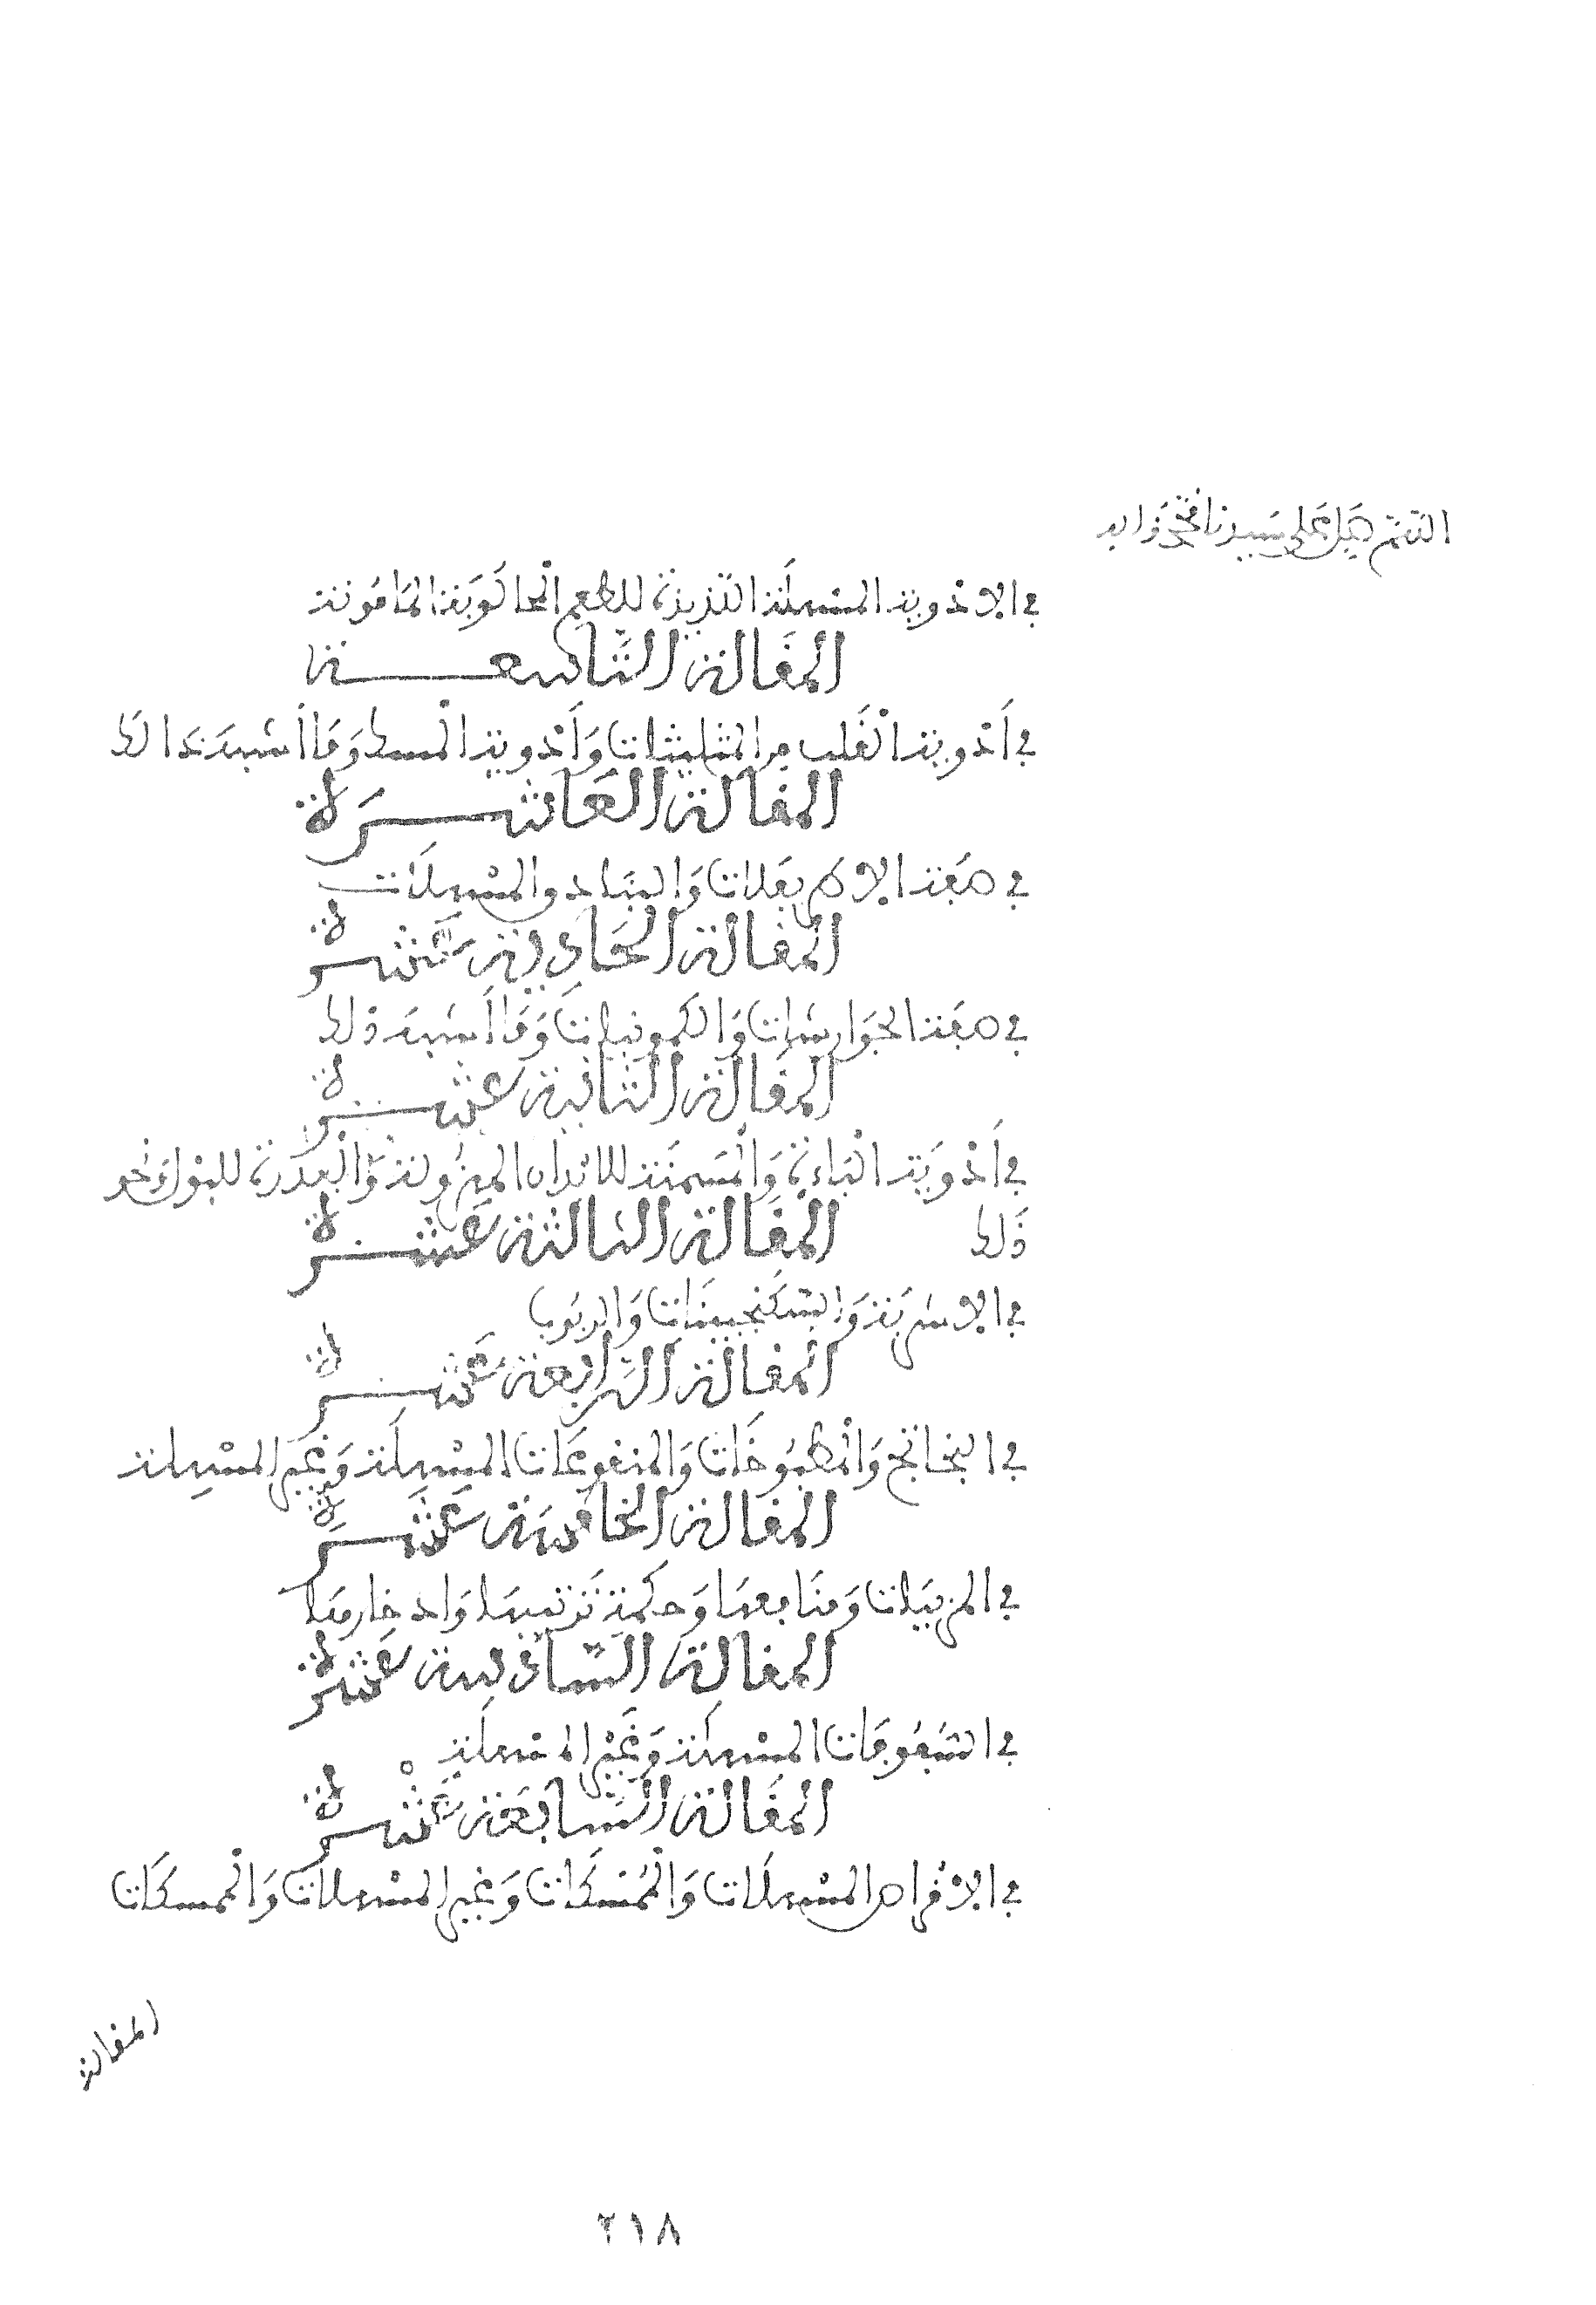 اللهم صل على سيدنا محمد واله
في الادوية المسهلة اللذيذة للطعم المالوفة المامونة
المقالة التاسعة
في أدوية القلب من المثلثات وأدوية المسك وما أشبه ذالك
المقالة العاشرة
في صفة الاطريفلات والبنادق المسهلات
المقالة الحادية عشرة
في صفة الجوارشات والكمونيات وما أشبه ذلك
المقالة الثانية عشرة
في أدوية الباءة والمسمنة للابدان المهزولة والمدرة للبول ونحو
ذلك
المقالة الثالثة عشرة
في الاشربة والسكنجبينات والربوب
المقالة الرابعة عشرة
في البخاتج والمطبوخات والمنقوعات المسهلة وغير المسهلة
المقالة الخامسة عشرة
في المربيات ومنافعها وحكمة تربيبها وادخارها
المقالة السادسة عشرة
في السفوفات المسهلة وغير المسهلة
المقالة السابعة عشرة
في الاقراص المسهلات والممسكات وغير المسهلات والممسكات
المقالة
٢١٨